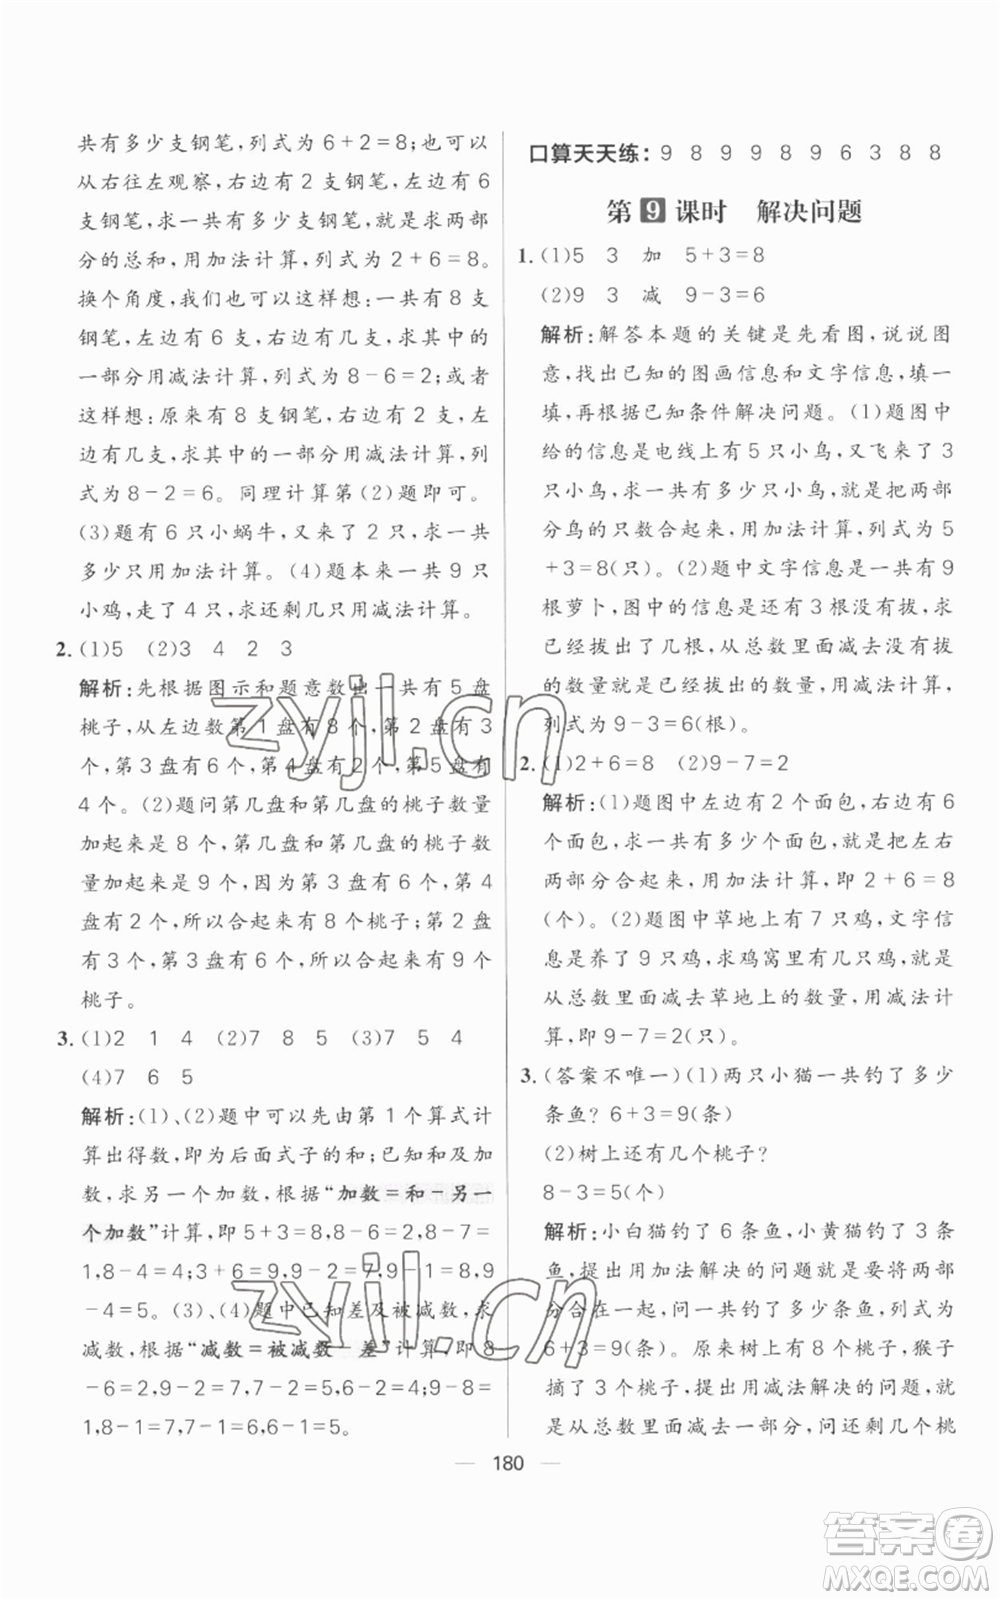 共有多少支钢笔,列式为6+2=8;也可以
从右往左观察,右边有2支钢笔,左边有6
支钢笔,求一共有多少支钢笔,就是求两部
分的总和,用加法计算,列式为2+6=8。
换个角度,我们也可以这样想:一共有8支
钢笔,左边有6支,右边有几支,求其中的
一部分用减法计算,列式为8-6=2;或者
这样想:原来有8支钢笔,右边有2支,左
边有几支,求其中的一部分用减法计算,列
式为8-2=6。同理计算第(2)题即可。
(3)题有6只小蜗牛,又来了2只,求一共
多少只用加法计算。(4)题本来一共9只
小鸡,走了4只,求还剩几只用减法计算。
2. (1)5 (2)3 4 2 3
解析:先根据图示和题意数出一共有5盘
桃子,从左边数第1盘有8个,第2盘有3
个,第3盘有6个,第4盘有2个,第5盘有
4个。(2)题问第几盘和第几盘的桃子数量
加起来是8个,第几盘和第几盘的桃子数
量加起来是9个,因为第3盘有6个,第4
盘有2个,所以合起来有8个桃子;第2盘
有3个,第3盘有6个,所以合起来有9个
桃子。
3. (1)2 1 4 (2)7 8 5 (3)7 5 4
(4)7 6 5
解析:(1)、(2)题中可以先由第1个算式计
算出得数,即为后面式子的和;已知和及加
数,求另一个加数,根据“加数=和-另一
个加数”计算,即5+3=8,8-6=2,8-7=
1,8-4=4;3+6=9,9-2=7,9-1=8,9
-4=5。(3)、(4)题中已知差及被减数,求
减数,根据“减数=被减数 差”计算,即8
-6=2,9-2=7,7-2=5,6-2=4;8-7=
1,8-1=7,7-1=6,6-1=5。
口算天天练:9 8 9 9 8 9 6 3 8 8
第9课时 解决问题
1. (1)5 3 加 5+3=8
(2)9 3 减 9-3=6
解析:解答本题的关键是先看图,说说图
意,找出已知的图画信息和文字信息,填一
填,再根据已知条件解决问题。(1)题图中
给的信息是电线上有5只小鸟,又飞来了3
只小鸟,求一共有多少只小鸟,就是把两部
分鸟的只数合起来,用加法计算,列式为5
+3=8(只)。(2)题中文字信息是一共有9
根萝卜,图中的信息是还有3根没有拔,求
已经拔出了几根,从总数里面减去没有拔的
的数量就是已经拔出的数量,用减法计算,
列式为9-3=6(根)。
2. (1)2+6=8 (2)9-7=2
解析:(1)题图中左边有2个面包,右边有6
个面包,求一共有多少个面包,就是把左右
两部分合起来,用加法计算,即2+6=8
(个)。(2)题图中草地上有7只鸡,文字信
息是养了9只鸡,求鸡窝里有几只鸡,就是
从总数里面减去草地上的数量,用减法计
算,即9-7=2(只)。
3. (答案不唯一)(1)两只小猫一共钓了多少
条鱼?6+3=9(条)
(2)树上还有几个桃子?
8-3=5(个)
解析:小白猫钓了6条鱼,小黄猫钓了3条
鱼,提出用加法解决的问题就是要将两部
分合在一起,问一共钓了多少条鱼,列式为
6+3=9(条)。原来树上有8个桃子,猴子
摘了3个桃子,提出用减法解决的问题,就
是从总数里面减去一部分,问还剩几个桃
180
zyjl.cn
zyjl.cn
答案圈
MXQE.COM